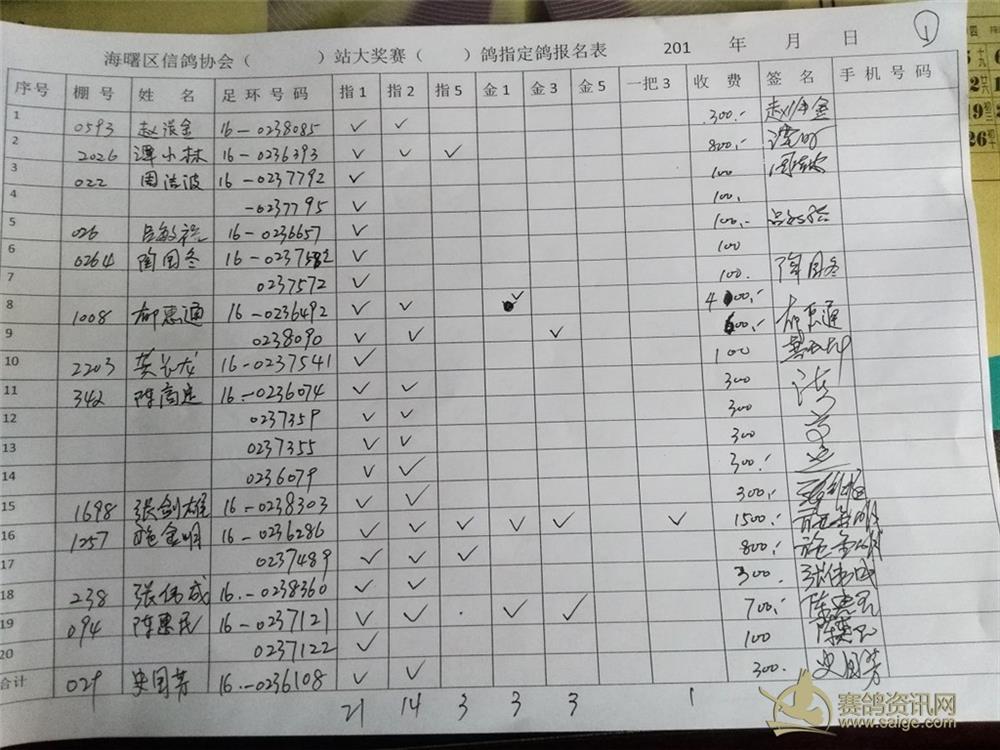 ①
海曙区信鸽协会（ ）站大奖赛（ ）鸽指定鸽报名表 201 年 月 日
序号 棚号 姓 名 足环号码 指1 指2 指5 金1 金3 金5 一把3 收 费 签 名 手机号码
1 0593 赵 金 16-0238085 ✓ ✓ 300.-
2 2026 谭小林 16-0236393 ✓ ✓ ✓ 800.-
3 022 周 波 16-0237792 ✓ 100
4 -0237795 ✓ 100.
5 026 吕敏 16-0236657 ✓ 100.-
6 0264 陶国冬 16-0237582 ✓ 100 陶国冬
7 0237572 ✓ 100.
8 1008 郁惠通 16-0236492 ✓ ✓ ✓ 400.- 郁惠通
9 0238090 ✓ ✓ ✓ 600.-
10 2203 龙 16-0237541 ✓ 100
11 342 陈高定 16.-0236074 ✓ ✓ 300
12 0237359 ✓ ✓ 300
13 0237355 ✓ ✓ 300
14 0236079 ✓ ✓ 300.-
15 1698 张剑雄 16-0238303 ✓ ✓ 300.-
16 1257 施金明 16-0236286 ✓ ✓ ✓ ✓ ✓ ✓ 1500.- 施金明
17 0237489 ✓ ✓ ✓ 800.- 施金明
18 238 张伟成 16.-0238360 ✓ ✓ 300. 张伟成
19 094 陈惠民 16-0237121 ✓ ✓ ✓ ✓ 700.- 陈惠民
20 0237122 ✓ 100 陈惠民
合计 029 史国芳 16.-0236108 ✓ ✓ 300. 史国芳
21 14 3 3 3 1
赛鸽资讯网
www.saige.com